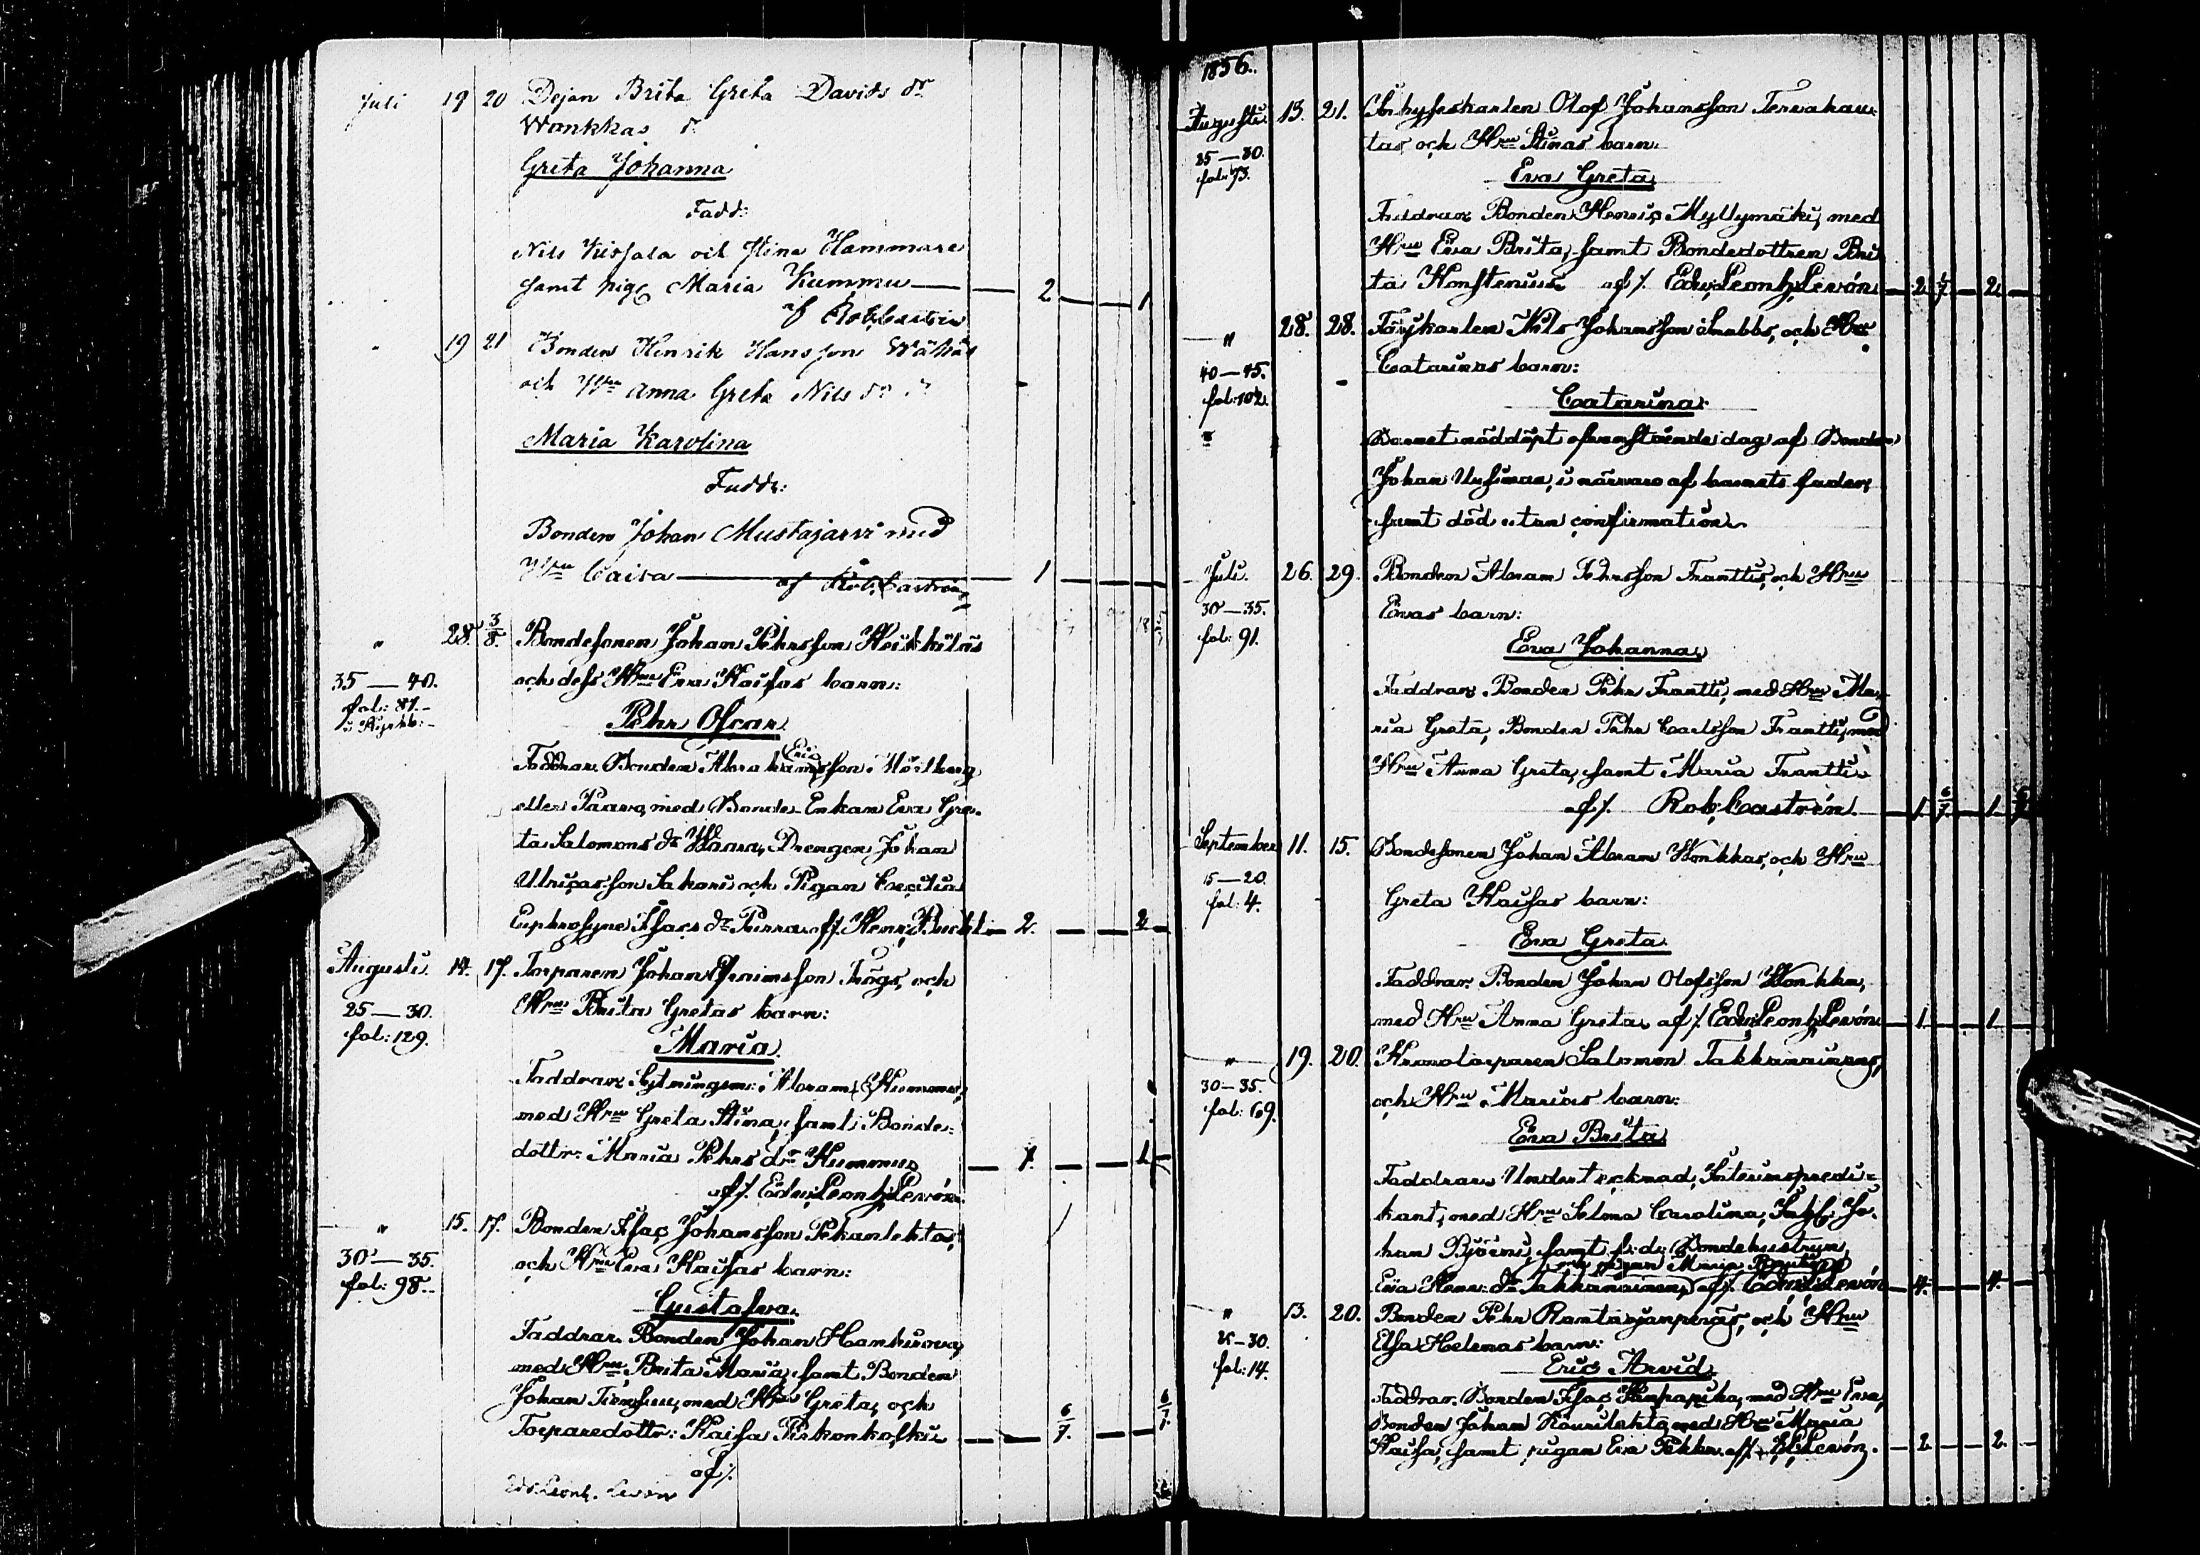 Juli 19 20 Dejan Brita Greta Davids dr
Wankkas
Greta Johanna
Fadd:
Nils och Stina Hammare
samt pig Maria Kummu 2 1
af Rob. Castrén
" 19 21 Bonden Henrik Hansson
och Hru Anna Greta Nils dr
Maria Karolina
Faddr:
Bonden Johan Mustajarvi med
Hru Caisa 1
af Rob. Castrén
" 28. 3/8. Bondesonen Johan Pehrsson Heikkiläs
35 — 40. och dess Hru Eva Kaisas barn:
fol: 87.
Pehr Oscar.
Faddrar. Bonden
eller Paavo, med Bonde Enkan Eva Gre-
ta Salomons dr Waara, Drengen Johan
Ulricasson Sakari och Pigan Cecilia
Euphrosyne Isacs dr Purra. af/. Henr: 2. 2
Augusti. 14. 17. Torparen Johan och
25 — 30. Hru Brita Gretas barn:
fol: 129.
Maria.
Faddrar: Abram Kummu,
med Hru Greta Stina, samt Bonde-
dottr. Maria Pehrs dr Kummu 1. 1
af/. Edv: Leonh: Levón.
" 15. 17. Bonden Isac Johansson Pekanlehtos,
30 — 35. och Hru Eva Kaisas barn:
fol: 98.
Gustafva.
Faddrar. Bonden Johan
med Hru Brita Maria, samt Bonden
Johan med Hru Greta, och
Torparedottr: Kaisa 6/7. 6/7.
af/:
Edv. Leonh. Levón
1856.
Augusti. 13. 21. Inhyseskarlen Olof Johansson Tervahau-
25 — 30. tas och Hru Stinas barn:
fol: 73.
Eva Greta
Faddrar. Bonden Henric Myllymäki, med
Hru Eva Brita, samt Bondedottren Bri
ta af/. Edv: Leonh: Levón 2. 2.
" 28. 28. Nils Johansson och Hru
40 — 45. Catarinas barn:
fol: 102.
Catarina.
Barnet näddöpt dag af Bonden
Johan i närvaro af barnets fader,
samt död utan confirmation.
Juli. 26. 29. Bonden Abram Pehrsson Franttis, och Hru
30 — 35. Evas barn:
fol: 91.
Eva Johanna,
Faddrar. Bonden Pehr Frantti, med Hru Ma-
ria Greta, Bonden Pehr Carlsson Frantti, med
Hru Anna Greta, samt Maria Frantti
af/. Rob. Castrén. 1. 6/7. 1.
September 11. 15. Bondesonen Johan Abram Wonkkas, och Hru
15 — 20. Greta Kaisas barn:
fol: 4.
Eva Greta.
Faddrar. Bonden Johan Olofsson Wonkka,
med Hru Anna Greta, af/. Edv: Leonh: Levón 1. 1.
" 19. 20. Kronotorparen Salomon Takkinainens,
30 — 35. och Hru Marias barn:
fol: 69.
Eva Brita
Faddrar. Undertecknad, Interimspredi-
kant, med Hru Selma Carolina, Jo-
han samt f: d: Bondehustrun,
och pigan Maria
Eva Henr. dr Takkinainen, af/. Levón 4. 4.
" 13. 20. Bonden Pehr och Hru
25 — 30. Elsa Helenas barn:
fol: 14.
Eric Arvid.
Faddrar. Bonden Isac med Hru Eva,
Bonden Johan med Hru Maria
Kaisa, samt pigan Eva af/. Levón. 2. 2.